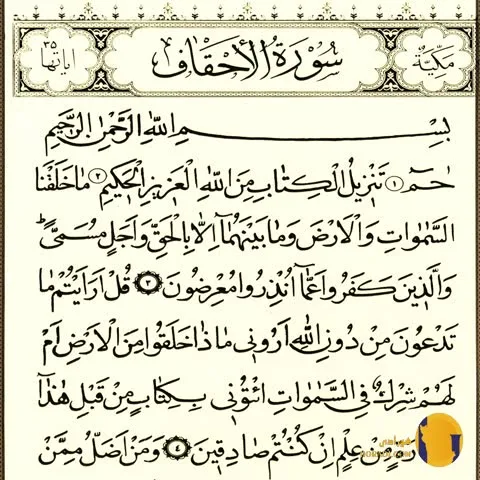 مكيّة سورة الأحقاف اياتها ٣٥
بسم الله الرحمن الرحيم
حٰم ١ تنزيل الكتاب من الله العزيز الحكيم ٢ ما خلقنا
السموات والارض وما بينهما الا بالحق واجل مسمى ط
والذين كفروا عما انذروا معرضون ٣ قل ارايتم ما
تدعون من دون الله اروني ماذا خلقوا من الارض ام
لهم شرك في السموات ائتوني بكتاب من قبل هذا
من علم ان كنتم صادقين ٤ ومن اضل ممن